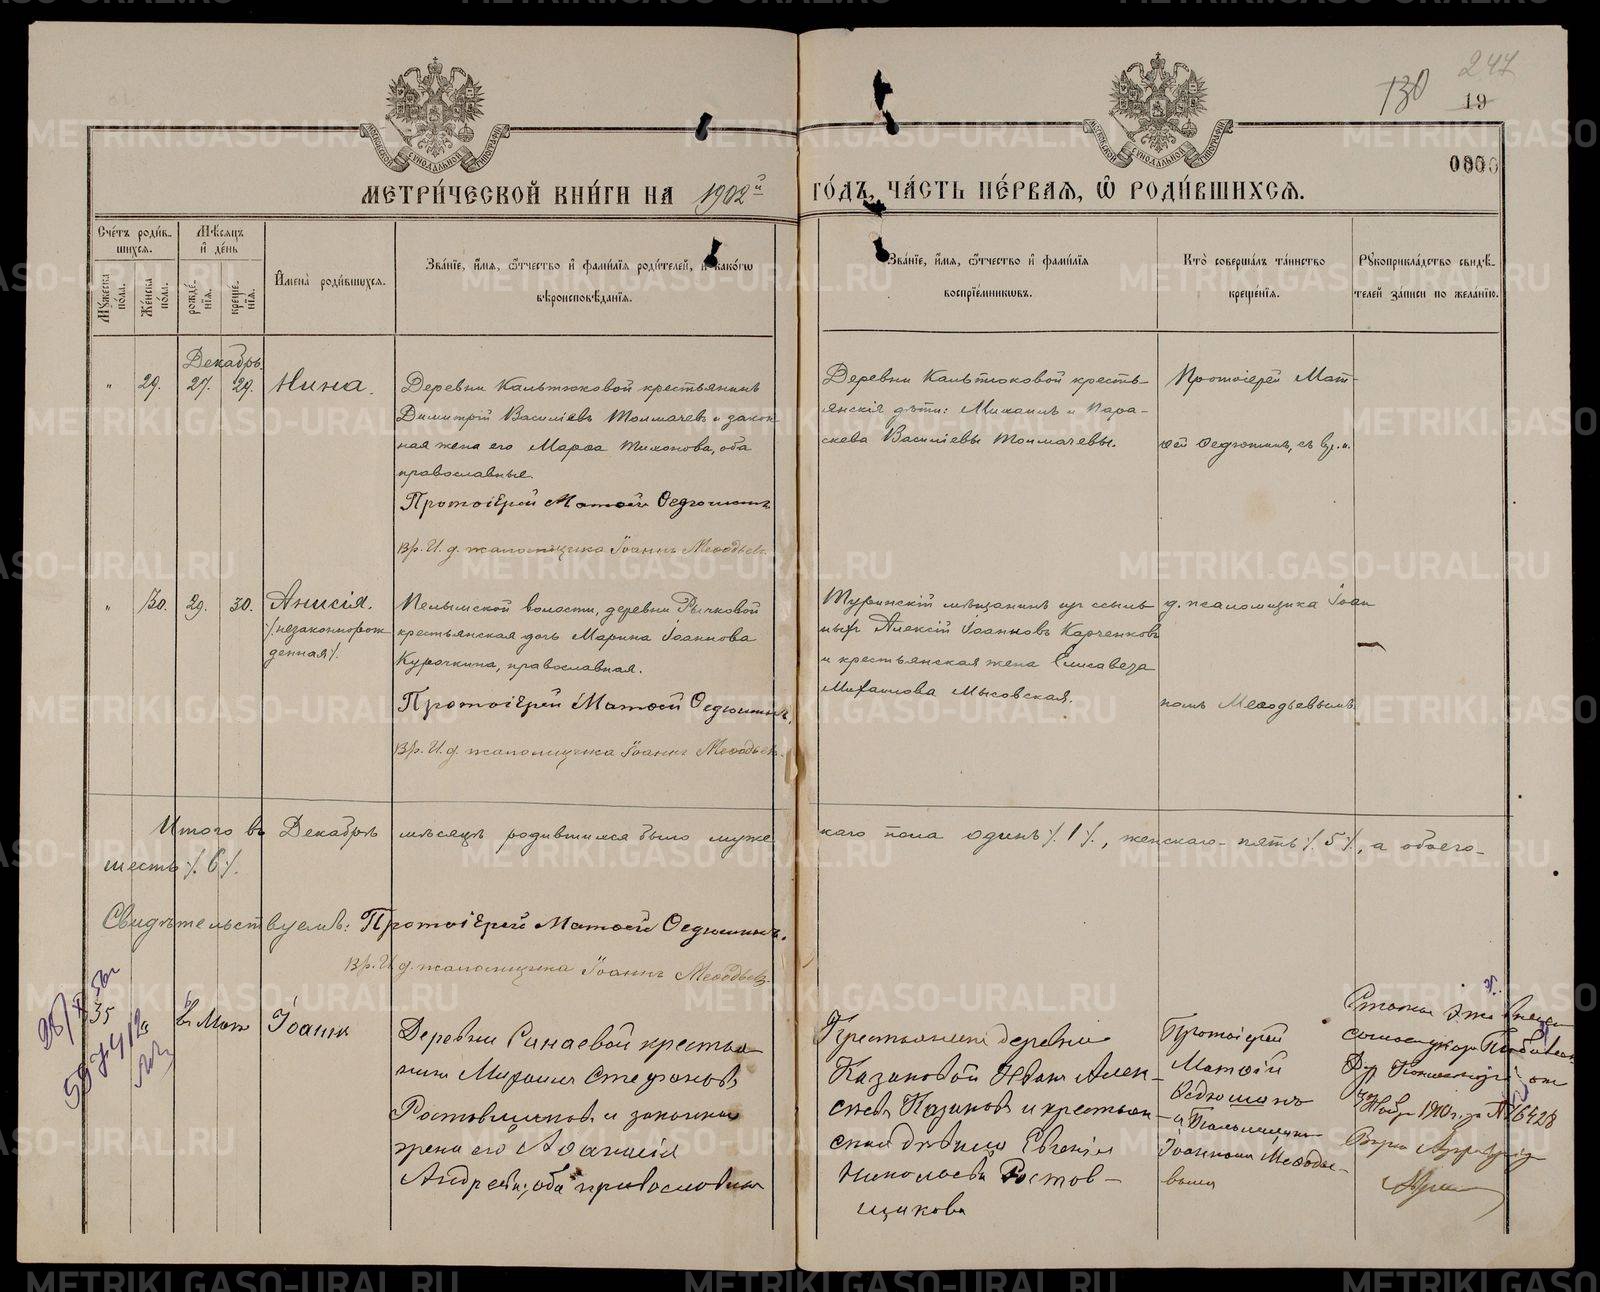 130
247
19
0000
МЕТРИ́ЧЕСКОЙ КНИ́ГИ НА 1902й ГО́ДЪ, ЧА́СТЬ ПЕ́РВАЯ, Ѡ҆ РОДИ́ВШИХСѦ.
Сче́тъ роди́в-
шихсѧ.
Мꙋ́жеска по́ла.
Же́нска по́ла.
Мѣ́сѧцъ и҆ де́нь
рожде́-
нїѧ.
креще́-
нїѧ.
И҆мена̀ роди́вшихсѧ.
Зва́нїе, и҆́мѧ, ѻ҆́тчество и҆ фами́лїѧ роди́телей, и҆ како́гѡ
вѣроисповѣ́данїѧ.
Зва́нїе, и҆́мѧ, ѻ҆́тчество и҆ фами́лїѧ
воспрїе́мникѡвъ.
Кто̀ соверша́лъ та́инство
креще́нїѧ.
Рꙋкоприкла́дство свидѣ́-
телей за́писи по жела́нїю.
Декабрь.
" 29. 27. 29. Нина.
Деревни Кальтюковой крестьянинъ
Димитрій Василіевъ Толмачевъ и закон
ная жена его Марѳа Тихонова, оба
православные.
Протоіерей Матѳій Ѳедюшинъ
Вр. И. д. псаломщика Іоаннъ Меѳодьевъ.
Деревни Кальтюковой кресть-
янскія дѣти: Михаилъ и Пара-
скева Василіевы Толмачевы.
Протоіерей Мат-
ѳій Ѳедюшинъ, съ вр. и.
" 30. 29. 30. Анисія.
/незаконнорож
денная/.
Пелымской волости, деревни Рычковой
крестьянская дочь Марина Іоаннова
Курочкина, православная.
Протоіерей Матѳій Ѳедюшинъ.
Вр. И. д. псаломщика Іоаннъ Меѳодьевъ.
Туринскій мѣщанинъ изъ ссыль
ныхъ Алексій Іоанновъ Карченковъ
и крестьянская жена Елисавета
Михаилова Мысовская.
д. псаломщика Іоан
номъ Меѳодьевымъ.
Итого въ Декабрѣ мѣсяцѣ родившихся было муже
скаго пола одинъ /1/, женскаго - пять /5/, а обоего -
шесть /6/.
Свидѣтельствуемъ: Протоіерей Матѳій Ѳедюшинъ.
Вр. И. д. псаломщика Іоаннъ Меѳодьевъ
35
Іоаннъ
Деревни Синаевой крестья
нинъ Михаилъ Стефановъ
Ростовщиковъ и законная
жена его Аѳанасія
Андреева, оба православные
Крестьянинъ деревни
Казаковой Иванъ Алек-
сѣевъ Казаковъ и крестьян
ская дѣвица Евгенія
Николаева Ростов-
щикова
Протоіерей
Матѳій
Ѳедюшинъ
и Псаломщикъ
Іоанномъ Меѳодье-
вымъ
Статья эта внесена
1910 г. за № 16428